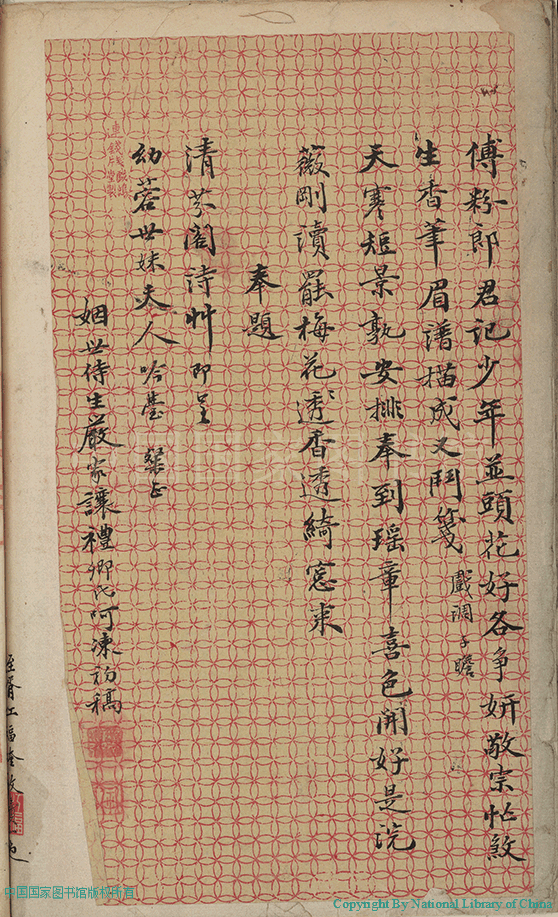 傅粉郎君記少年並頭花好各爭妍敬宗忙敘
生香筆眉譜描成又鬥箋 戲調子瞻
天寒短景孰安排奉到瑶章喜色開好是浣
薇剛瀆罷梅花透香透綺窓來
奉題
清芬閣詩艸即呈
幼蓉世妹夫人吟臺 粲正
姻世侍生嚴家讓禮卿氏呵凍初稿
中国国家图书馆版权所有
Copyright By National Library of China